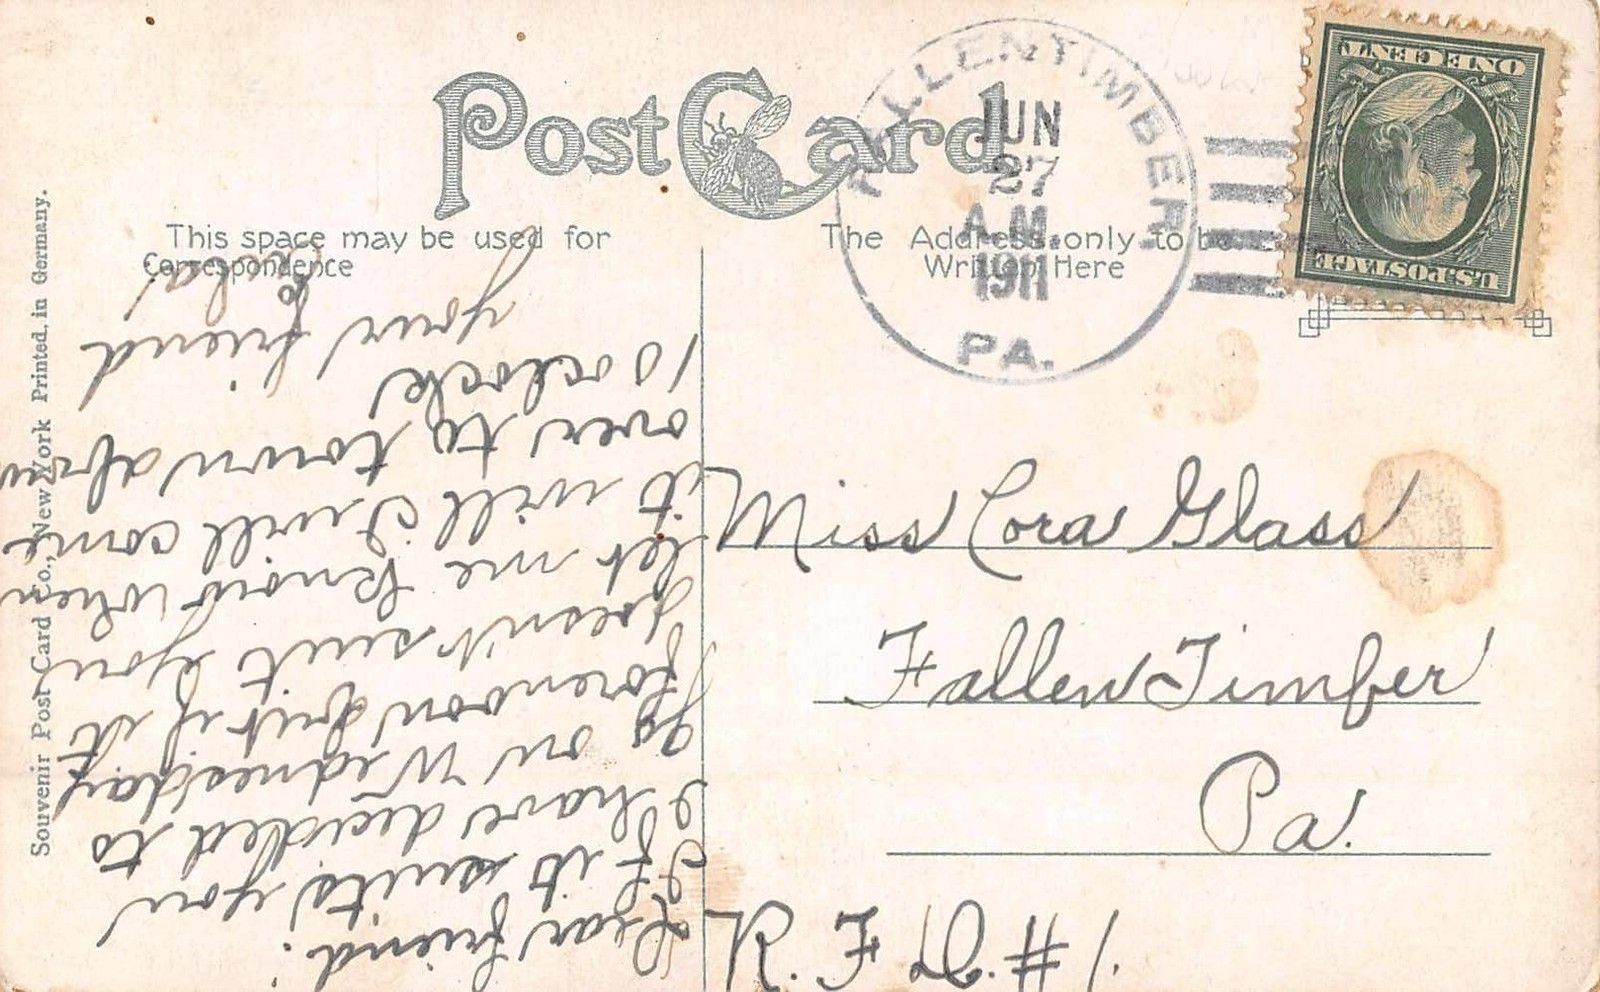 Post Card
This space may be used for
Correspondence
The Address only to be
Written Here
FALLENTIMBER
JUN
27
A.M.
1911
PA.
U.S. POSTAGE
ONE CENT
Miss Cora Glass
Fallen Timber
Pa.
R. F. D. # 1.
Dear friend:
If it suits you
I have decided to
go on Wednesday
forenoon but if it
doesn't suit you
let me know when
it will I will come
over to town after
10 oclock
your friend
Souvenir Post Card Co., New York Printed in Germany.